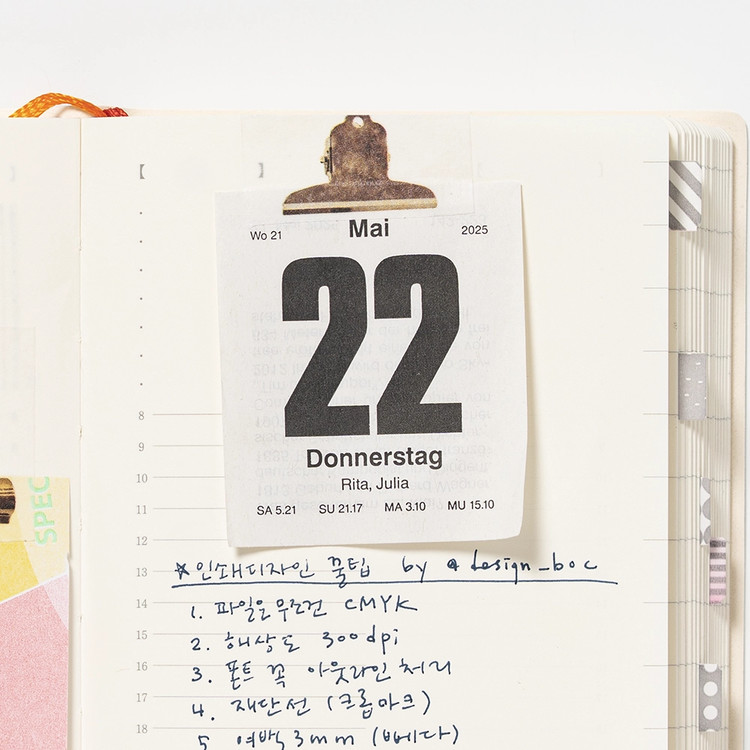 Wo 21 Mai 2025
22
Donnerstag
Rita, Julia
SA 5.21 SU 21.17 MA 3.10 MU 15.10
SPEC
8
9
10
11
12
13 ☆인쇄디자인 꿀팁 by @design_boc
14 1. 파일은 무조건 CMYK
15 2. 해상도 300dpi
16 3. 폰트 꼭 아웃라인 처리
17 4. 재단선 (크롭마크)
18 5. 여백 3mm (베다)